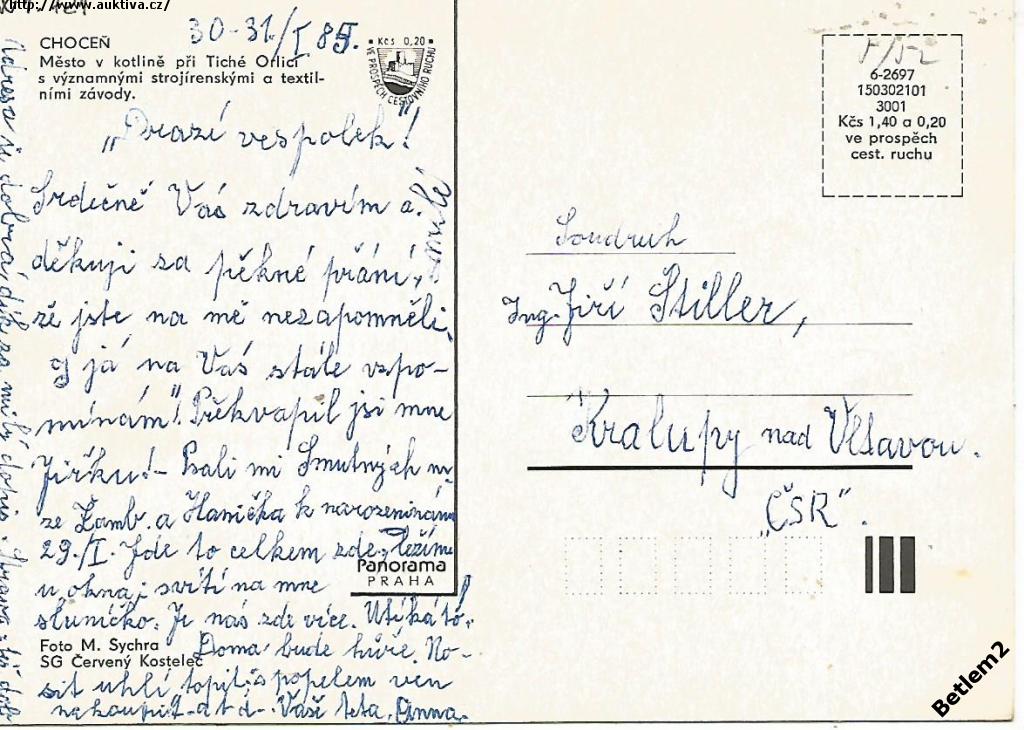 http://www.auktiva.cz/
30-31/I 85.
CHOCEŇ
Město v kotlině při Tiché Orlici
s významnými strojírenskými a textil-
ními závody.
• Kčs 0,20 •
VE PROSPĚCH CESTOVNÍHO RUCHU
„Drazí vespolek!"
Srdečně Vás zdravím a
děkuji za pěkné přání,
že jste na mě nezapomněli,
já na Vás stále vzpo-
mínám"! Překvapil jsi mne
Jiřku!- Psali mi Smutných
ze Žamb. a Hanička k narozeninám
29./I. Jde to celkem zde, ležíme
u okna; svítí na mne
sluníčko. Je nás zde více. Utíká to!
Doma bude hůře. No-
sit uhlí, topit, s popelem ven
nakoupit - a t d - Vaše teta Anna.
Adresa je dobrá, dík za milý dopis.
Panorama
PRAHA
Foto M. Sychra
SG Červený Kostelec
5/52
6-2697
150302101
3001
Kčs 1,40 a 0,20
ve prospěch
cest. ruchu
Soudruh
Ing. Jiří Stiller,
Kralupy nad Vltavou.
„ČSR".
Betlem2